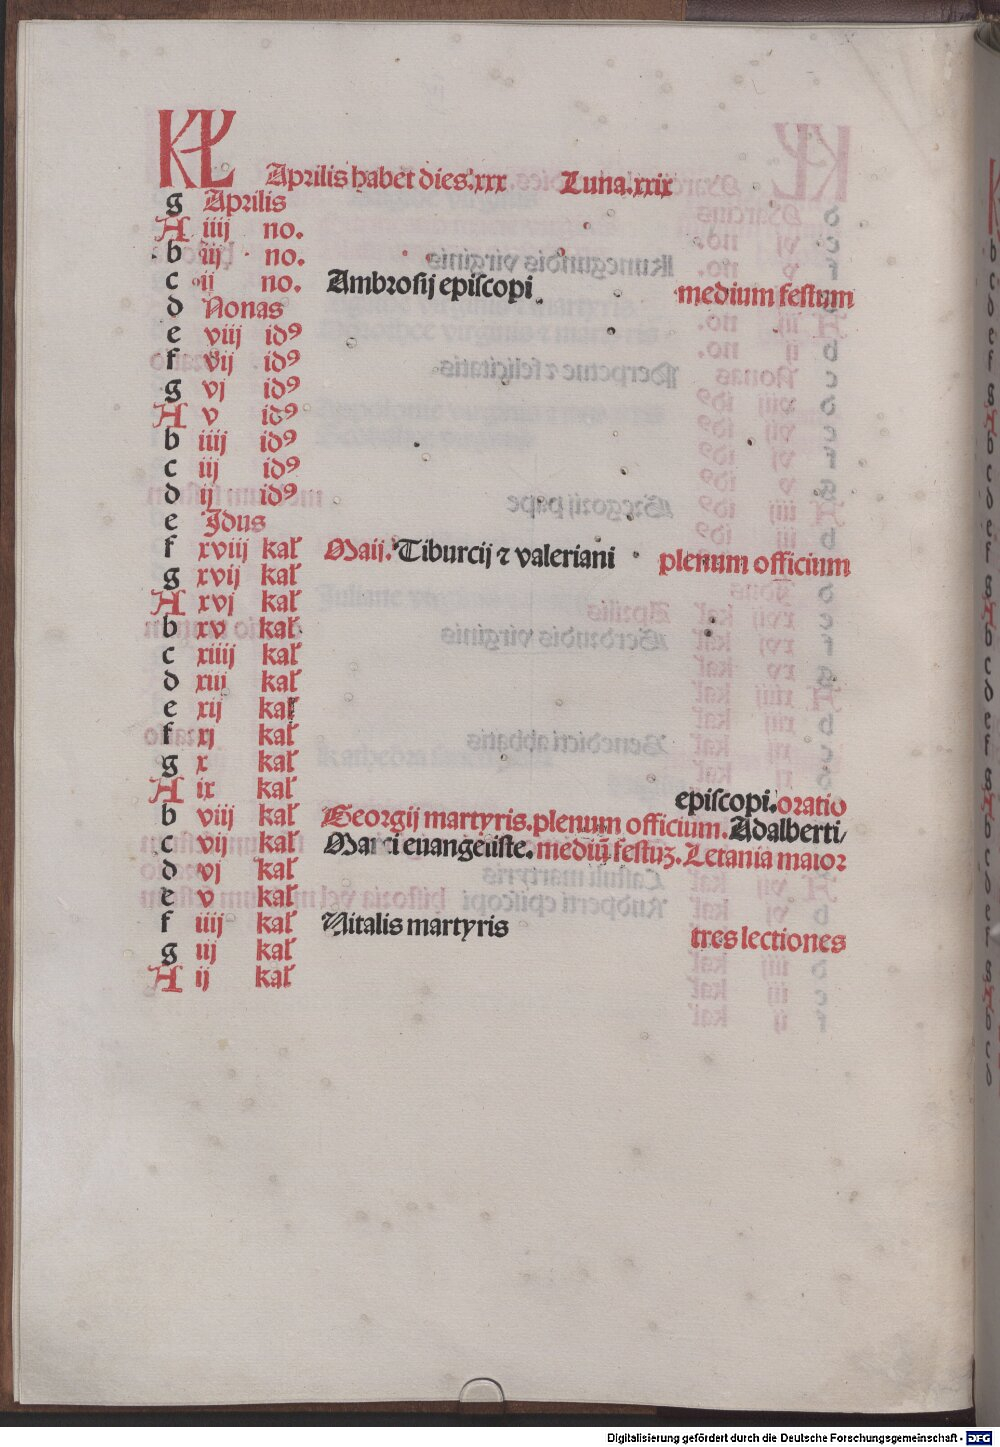 KL Aprilis habet dies.xxx Luna.xxix
g Aprilis
A iiij no.
b iij no.
c ij no. Ambrosij episcopi medium festum
d Nonas
e viij idꝰ
f vij idꝰ
g vj idꝰ
A v idꝰ
b iiij idꝰ
c iij idꝰ
d ij idꝰ
e Jdus
f xviij kal Maij. Tiburcij ⁊ valeriani plenum officium
g xvij kal
A xvj kal
b xv kal
c xiiij kal
d xiij kal
e xij kal
f xj kal
g x kal
A ix kal episcopi. oratio
b viij kal Georgij martyris. plenum officium. Adalberti/
c vij kal Marci euangeliste. mediū festuꝫ. Letania maior
d vj kal
e v kal
f iiij kal Vitalis martyris tres lectiones
g iij kal
A ij kal
Digitalisierung gefördert durch die Deutsche Forschungsgemeinschaft - DFG